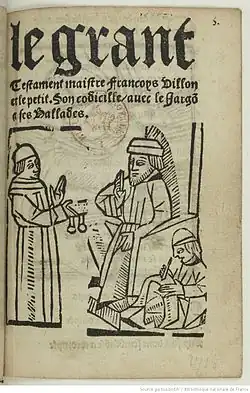 5.
le grant
Testament maistre Francoys Villon
et le petit. Son codicille / auec le Jargõ
⁊ ses Ballades.
Source gallica.bnf.fr / Bibliothèque nationale de France